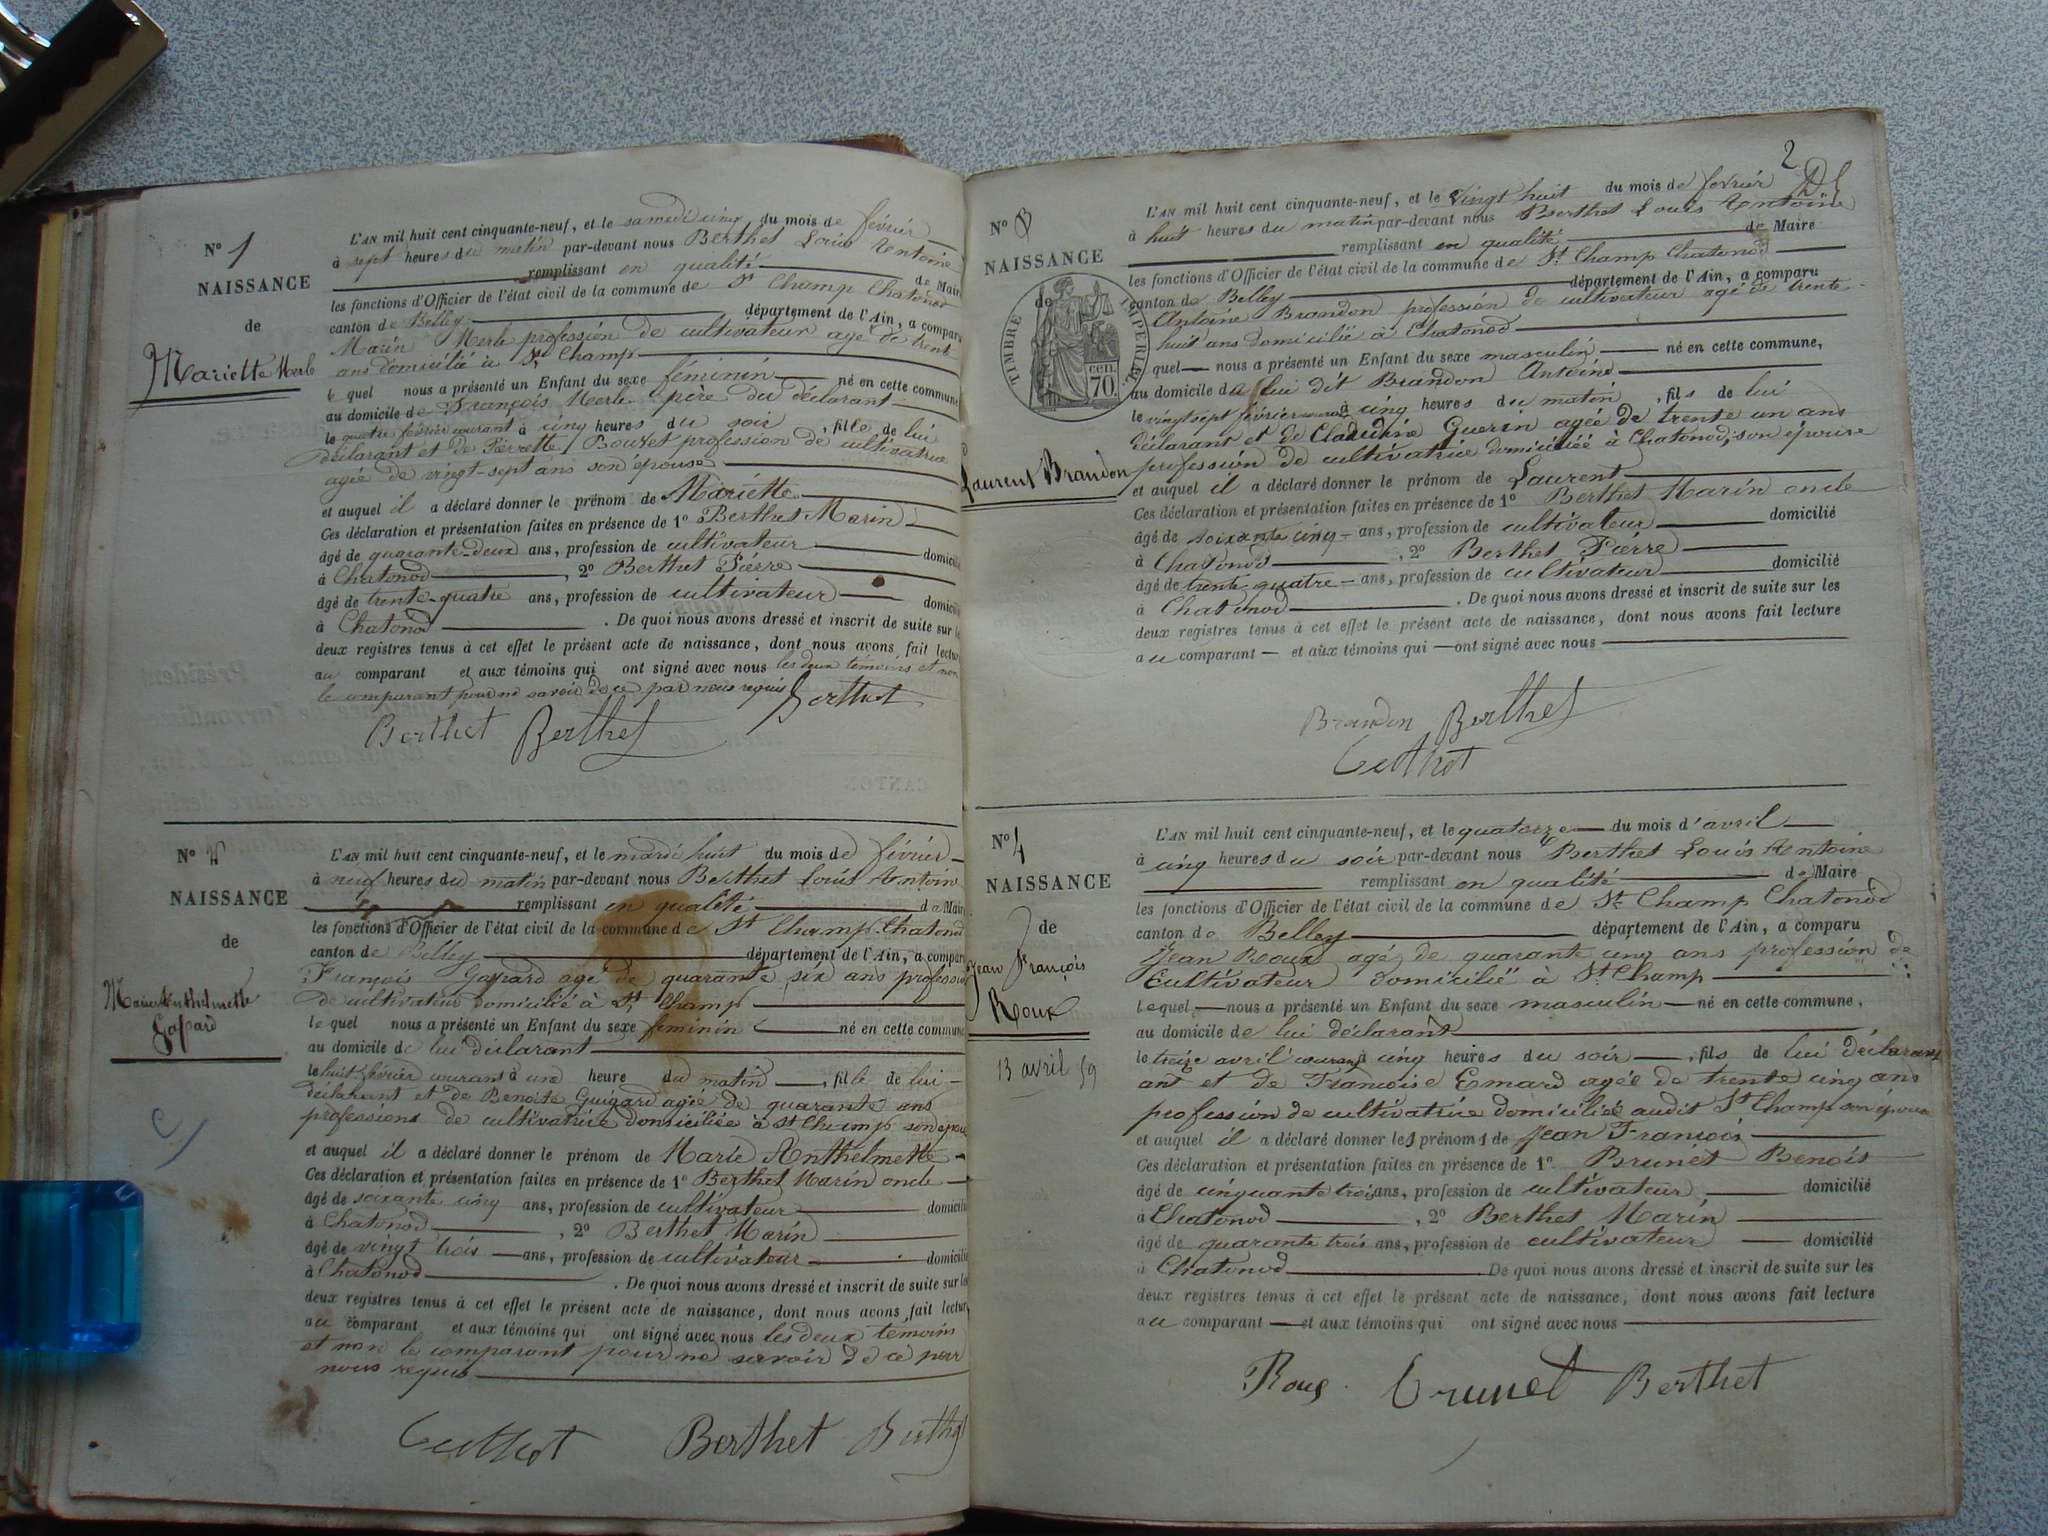 N° 1
NAISSANCE
de
Mariette Merle
L'AN mil huit cent cinquante-neuf, et le samedi cinq du mois de février
à sept heures du matin par-devant nous Berthet Louis Antoine
remplissant en qualité de Maire
les fonctions d'Officier de l'état civil de la commune de St Champ Chatonod
canton de Belley département de l'Ain, a comparu
Marin Merle profession de cultivateur agé de trente
ans domicilié à St Champ
le quel nous a présenté un Enfant du sexe féminin né en cette commune
au domicile de François Merle père du déclarant
le quatre février courant à cinq heures du soir, fille de lui
déclarant et de Pierrette Bouvet profession de cultivatrice
agée de vingt-sept ans son épouse
et auquel il a déclaré donner le prénom de Mariette
Ces déclaration et présentation faites en présence de 1° Berthet Marin
âgé de quarante-deux ans, profession de cultivateur domicilié
à Chatonod, 2° Berthet Pierre
âgé de trente-quatre ans, profession de cultivateur domicilié
à Chatonod. De quoi nous avons dressé et inscrit de suite sur les
deux registres tenus à cet effet le présent acte de naissance, dont nous avons fait lecture
au comparant et aux témoins qui ont signé avec nous les deux témoins et non
le comparant pour ne savoir de ce par nous requis Berthet
Berthet Berthet
N° 2
NAISSANCE
de
Marie Anthelmette
Gapard
L'AN mil huit cent cinquante-neuf, et le mardi huit du mois de février
à neuf heures du matin par-devant nous Berthet Louis Antoine
remplissant en qualité de Maire
les fonctions d'Officier de l'état civil de la commune de St Champ-Chatonod
canton de Belley département de l'Ain, a comparu
François Gapard agé de quarante six ans profession
de cultivateur domicilié à St Champ
le quel nous a présenté un Enfant du sexe féminin né en cette commune
au domicile de lui déclarant
le huit février courant à une heure du matin, fille de lui
déclarant et de Benoite Guigard agée de quarante ans
professions de cultivatrice domiciliée à St Champ son épouse
et auquel il a déclaré donner le prénom de Marie Anthelmette
Ces déclaration et présentation faites en présence de 1° Berthet Marin oncle
âgé de soixante cinq ans, profession de cultivateur domicilié
à Chatonod, 2° Berthet Marin
âgé de vingt trois ans, profession de cultivateur domicilié
à Chatonod. De quoi nous avons dressé et inscrit de suite sur les
deux registres tenus à cet effet le présent acte de naissance, dont nous avons fait lecture
au comparant et aux témoins qui ont signé avec nous les deux temoins
et non le comparant pour ne savoir de ce par
nous requis
Berthet Berthet Berthet
2
N° 3
NAISSANCE
de
TIMBRE IMPERIAL
70 cen.
Laurent Brandon
L'AN mil huit cent cinquante-neuf, et le vingt huit du mois de février
à huit heures du matin par-devant nous Berthet Louis Antoine
remplissant en qualité de Maire
les fonctions d'Officier de l'état civil de la commune de St Champ Chatonod
canton de Belley département de l'Ain, a comparu
Antoine Brandon profession de cultivateur agé de trente-
huit ans domicilié à Chatonod
quel nous a présenté un Enfant du sexe masculin né en cette commune,
au domicile de lui dit Brandon Antoine
le vingt sept février courant à cinq heures du matin, fils de lui
déclarant et de Claudine Guerin agée de trente un ans
profession de cultivatrice domiciliée à Chatonod, son épouse
et auquel il a déclaré donner le prénom de Laurent
Ces déclaration et présentation faites en présence de 1° Berthet Marin oncle
âgé de soixante cinq ans, profession de cultivateur domicilié
à Chatonod, 2° Berthet Pierre
âgé de trente quatre ans, profession de cultivateur domicilié
à Chatonod. De quoi nous avons dressé et inscrit de suite sur les
deux registres tenus à cet effet le présent acte de naissance, dont nous avons fait lecture
au comparant et aux témoins qui ont signé avec nous
Brandon Berthet
Berthet
N° 4
NAISSANCE
de
Jean François
Roux
13 avril 59
L'AN mil huit cent cinquante-neuf, et le quatorze du mois d'avril
à cinq heures du soir par-devant nous Berthet Louis Antoine
remplissant en qualité de Maire
les fonctions d'Officier de l'état civil de la commune de St Champ Chatonod
canton de Belley département de l'Ain, a comparu
Jean Roux agé de quarante cinq ans profession de
Cultivateur domicilié à St Champ
le quel nous a présenté un Enfant du sexe masculin né en cette commune,
au domicile de lui déclarant
le treize avril courant à cinq heures du soir, fils de lui déclarant
ant et de Françoise Emard agée de trente cinq ans
profession de cultivatrice domiciliée audit St Champ son épouse
et auquel il a déclaré donner les prénoms de Jean François
Ces déclaration et présentation faites en présence de 1° Brunet Benoit
âgé de cinquante trois ans, profession de cultivateur domicilié
à Chatonod, 2° Berthet Marin
âgé de quarante trois ans, profession de cultivateur domicilié
à Chatonod. De quoi nous avons dressé et inscrit de suite sur les
deux registres tenus à cet effet le présent acte de naissance, dont nous avons fait lecture
au comparant et aux témoins qui ont signé avec nous
Roux Brunet Berthet